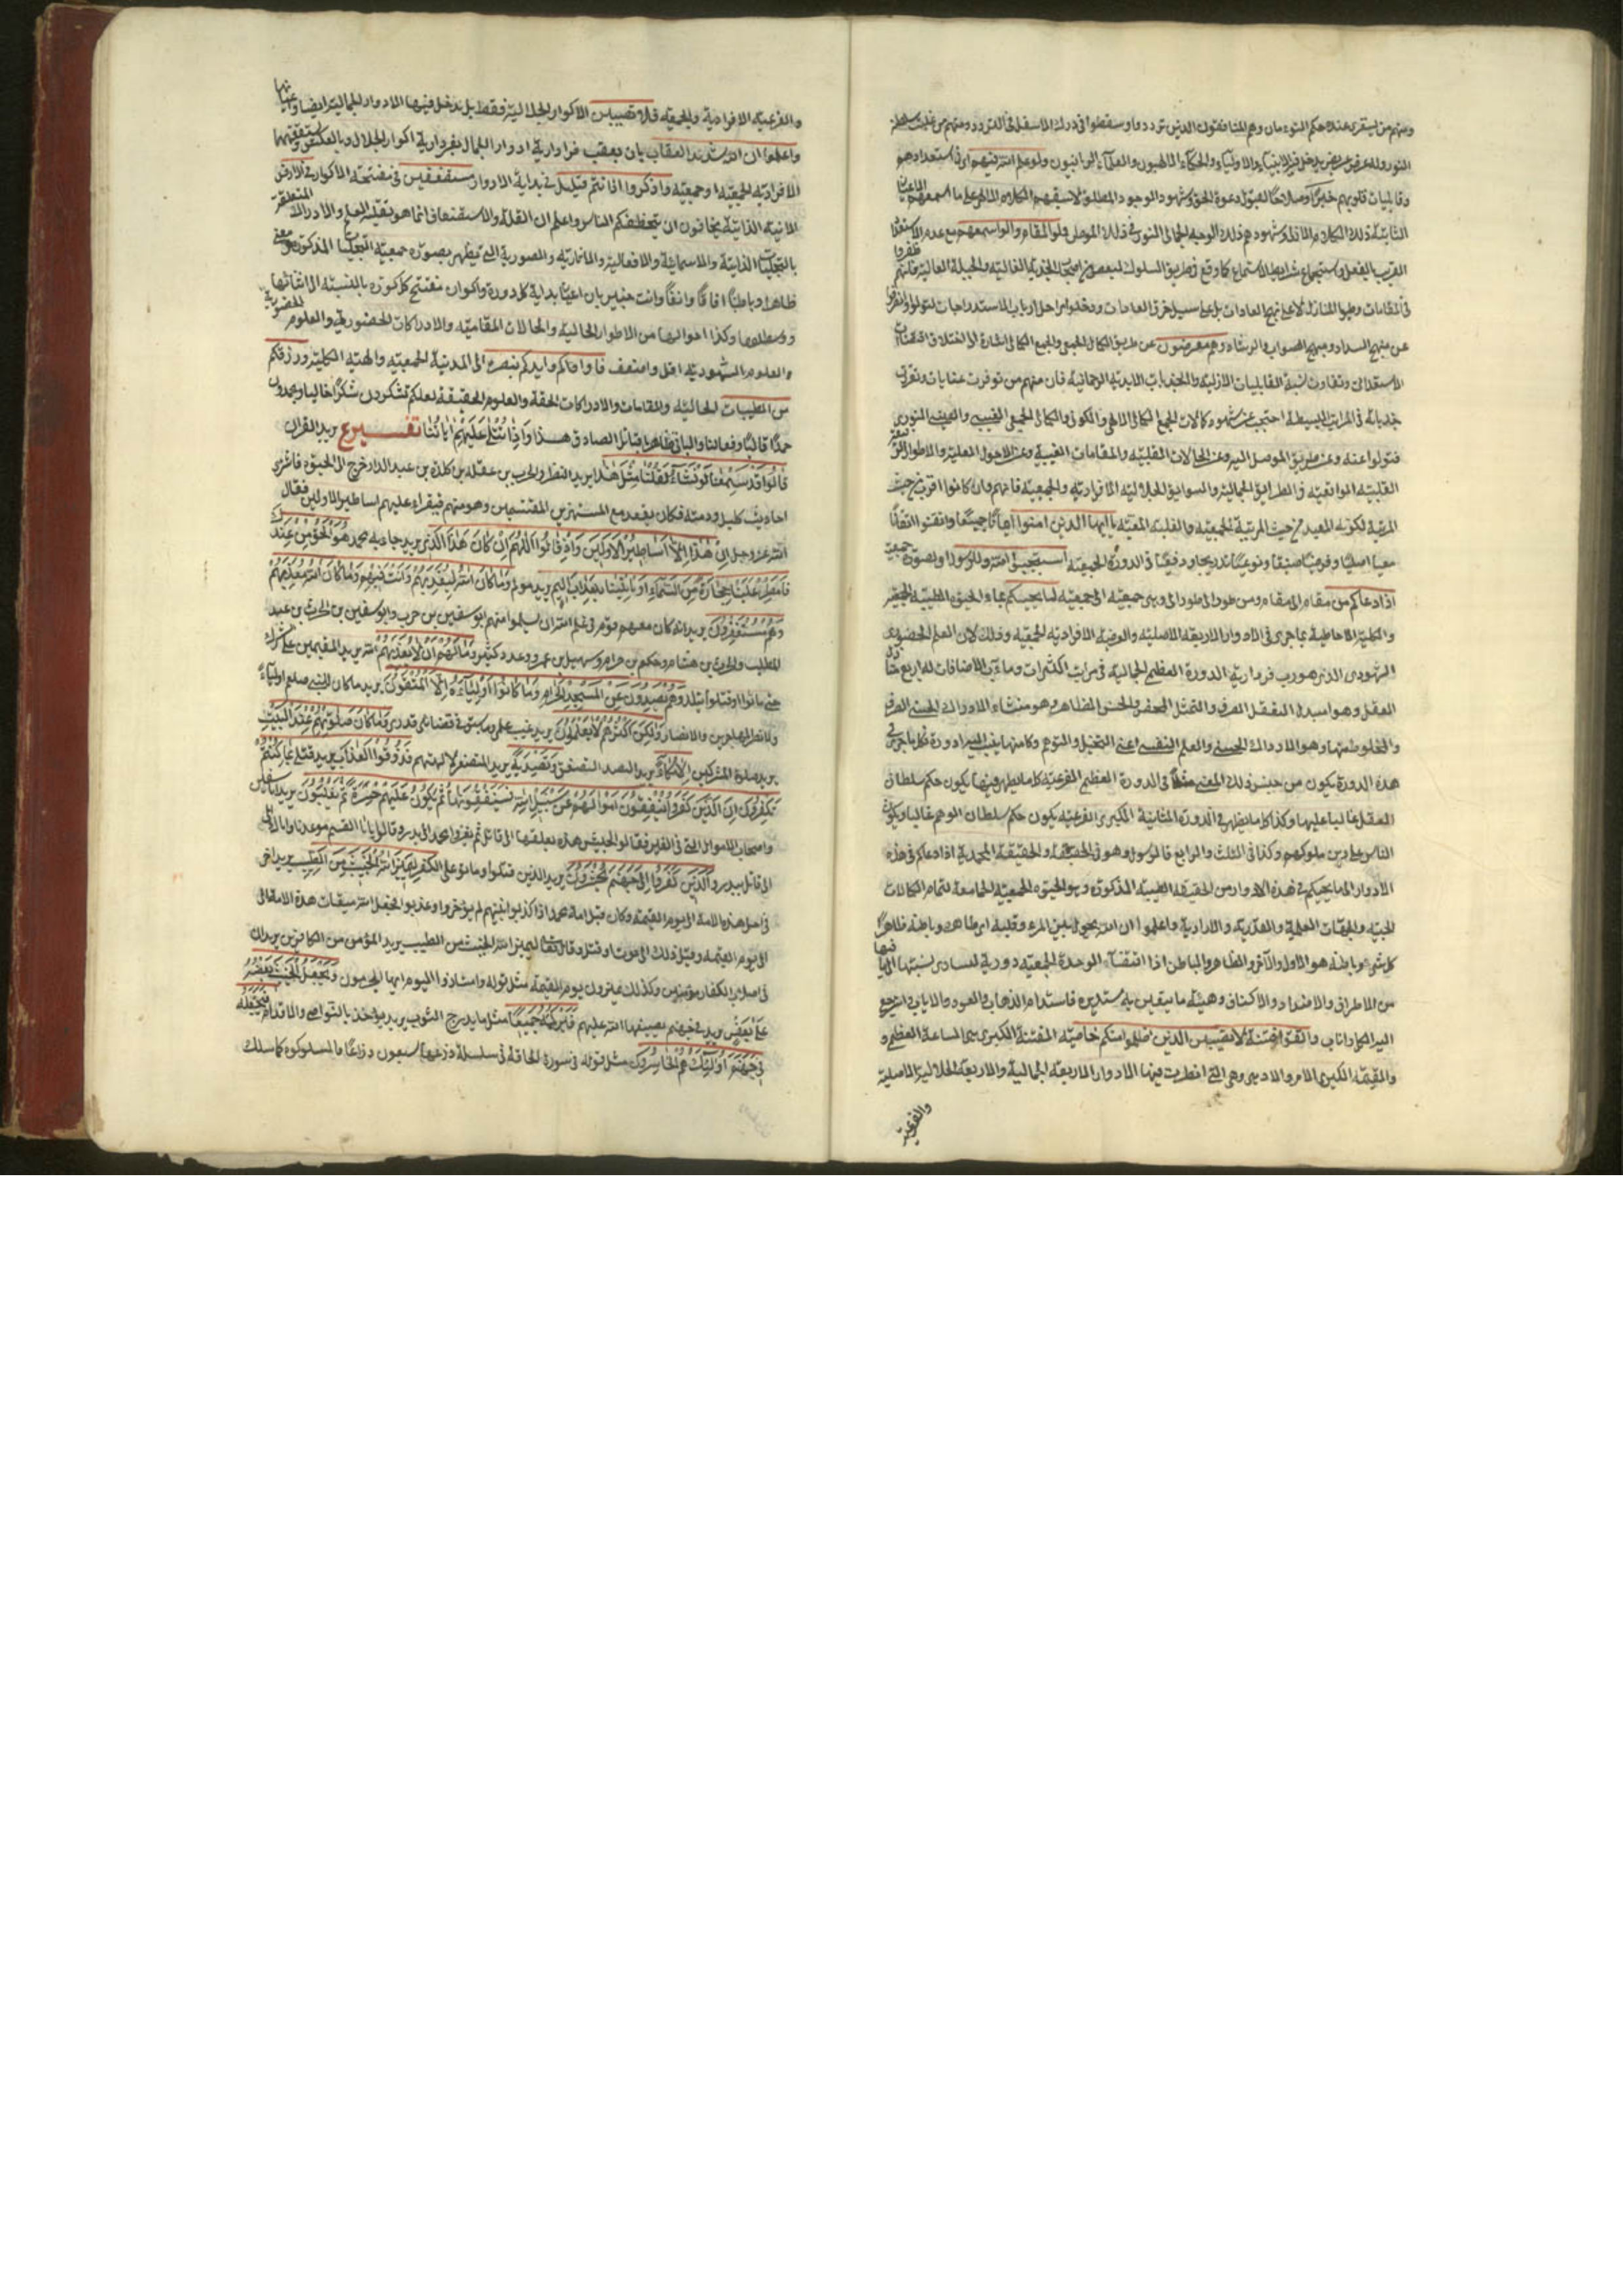 ومنهم من يستقر عنده حكم النوء مان وهم المنافقون الذين ترددوا وسقطوا في درك الاسفل في التردد ومنهم من
النور وله عرض عريض يدخل فيه الانبياء والاولياء والحكماء الالهيون والعلماء الربانيون ولو علم الله فيهم اى في استعدادهم
وقابليات قلوبهم خيرا وصلاحا لقبول دعوة الحق وشهود الوجود المطلق لاسمعهم الكلام الالهى على ما اسمعهم
الثابتة ذلك الكلام الازلى وشهودهم ذلك الوجه الجمالى النورى في ذلك الموطن ولو المقام ولو اسمعهم مع عدم الاستعداد
القريب بالفعل واستجماع شرايط الاستماع كما وقع في طريق السلوك لبعض من اصحاب الجذبة الغالبة والجبلة العالية فانهم
في المقامات وطى المنازل لا على نهج العادات بل على سبيل خرق العادات ودخلوا مراحل ارباب الاستدراجات لتولوا وانحرفوا
عن منهج السداد ومنهج الصواب والرشاد وهم معرضون عن طريق الكمال الجمعى والجمع الكمالى اشارة الى اختلاف اقتضاآت
الاستعدادات وتفاوت نسبة القابليات الازلية والجذبات الابدية الرحمانية فان منهم من توفرت عنايات وتعرف
جذباته في المراتب البسيطة احتجب عن شهود كمالات الجمع الكمالى الالهى والكونى والكمال الجمعى الغيبى والعينى النورى
فتولوا عنه وعن طريق الموصل اليه وعن الحالات القلبية والمقامات الغيبية وعن الاحوال العلية والاطوار
القلبية الواقعية في الطرايق الجمالية والسوابق الجلالية الافرادية والجمعية فانهم وان كانوا اقرب من حيث
المرتبة لكونه المعيد من حيث المرتبة الجمعية والغلبة المعية ياايها الذين امنوا ايمانا جمعيا واتقنوا اتقانا
معيا اصليا وفرعيا صنفيا ونوعيا تدريجيا ودفعيا في الدورة الجمعية استجيبوا لله وللرسول بصورة جمعية
اذا دعاكم من مقام الى مقام ومن طور الى طور الى وبى جمعية الى جمعية لما يحييكم بماء الحيوة الطيبة
والكلية الاحاطية بما جرى في الادوار الاربعة الاصلية والفرعية الافرادية الجمعية وذلك لان العلم الحضورى
الشهودى الذى هو رب فردارية الدورة العظمى الجمالية في مراتب الكثرات وما تحت الاضافات له اربع
العقل وهو اسبدى التعقل الصرف والتمثل المحض والحس الظاهر وهو منشاء الادراك الحسى الصرف
والمخلوط منها وهو الادراك الحسى والعلم النفسى اعنى التخيل والتوهم وكامنها دورة فكل ما جرى في
هذه الدورة يكون من جنس ذلك المعنى مثلا في الدورة العظمى الفرعية كلما يظهر فيها يكون حكم سلطان
العقل غالبا عليها وكذا كلما يظهر في الدورة الثانية الكبرى الفرعية يكون حكم سلطان الوهم غالبا ويكون
الناس على دين ملوكهم وكذا في الثلث والرابع فالرسول وهو في الحقيقة والحقيقة المحمدية اذا دعاكم في هذه
الادوار الى ما يحييكم في هذه الادوار من الحقيقة الطيبة المذكورة وهو الحيوة الجمعية الجامعة لتمام الكمالات
الحبية والجهات العلمية والقدرية والارادية واعلموا ان الله يحول بين المرء وقلبه اى ظاهره وباطنه فظاهر
كل شيء وباطنه هو الاول والآخر والظاهر والباطن اذا اقتضاء الوحدة الجمعية دورية لتساوى نسبتها الى ما فيها
من الاطراف والامتداد والاكناف وهيئة ما يتعين به مستديرة فاستدام الذهاب والعود والاياب واليه يرجع
اليه الكل واناب واتقوا فتنة لا تصيبن الذين ظلموا منكم خاصية الفتنة الكبرى هى الساعة العظمى و
والقيمة الكبرى الامر والادهى وهى التى انطوت فيها الادوار الاربعة الجمالية والاربعة الجلالية الاصلية
والفرعية
والفرعية الافرادية والجمعية فلا تصيبن الاكوار الجلالية فقط بل يدخل فيها الادوار الجمالية ايضا
واعلموا ان الله شديد العقاب بان يعقب فردارية ادوار الجمال بفردارية اكوار الجلال وبالعكس
الافرادية الجمعية وجمعية واذكروا اذ انتم قليل في بداية الادوار مستضعفين في مفتتحة الاكوار في الارض
الانية الذاتية تخافون ان يتخطفكم الناس واعلم ان القلة والاستضعاف انما هو بقلة العلم والادراك
بالتجليات الذاتية والاسمائية والافعالية والاثارية والصورية التى يظهر بصورة جمعية التجليات المذكورة
ظاهرا وباطنا افاقا وانفسا وانت خبير بان اعيان بداية كل دورة واكوان مفتتح كل كورة بالنسبة الى اثنائها
ووسطها وكذا احوالها من الاطوار الحالية والحالات المقامية والادراكات الحضورية والعلوم
والعلوم الشهودية اقل واضعف فاواكم وايدكم بنصره الى المدينة الجمعية والهيئة الكلية ورزقكم
من الطيبات الحالية والمقامات والادراكات الحقة والعلوم الحقيقية لعلكم تشكرون شكرا حاليا وتحمدون
حمدا قالبا وفعاليا والباقى ظاهر بتاثر الصادق هذا واذا تتلى عليهم اياتنا تفسيره يريد القران
قالوا قد سمعنا لو نشاء لقلنا مثل هذا يريد النضر والحرب بن علقمة بن كلدة بن عبد الدار خرج الى الحيرة فاشترى
احاديث كليل ودمنة فكان يقعد مع المستهزئين المقتسمين وهو منهم فيقراء عليهم اساطير الاولين فقال
الله عز وجل ان هذا الا اساطير الاولين واذ قالوا اللهم ان كان هذا الذى يريد جاء به محمد هو الحق من عندك
فامطر علينا حجارة من السماء او ائتنا بعذاب اليم يريد مولم وما كان الله ليعذبهم وانت فيهم وما كان الله معذبهم
وهم يستغفرون يريد انه كان معهم قوم في علم الله ان يسلموا منهم ابو سفين بن حرب وابو سفين بن الحرث بن عبد
المطلب والحرث بن هشام وحكيم بن حزام وسهيل بن عمرو وعدد كثير وما لهم ان لا يعذبهم الله يريد المقيمين على شرك
حتى ماتوا او قتلوا ببدر وهم يصدون عن المسجد الحرام وما كانوا اولياءه ان اولياءه الا المتقون يريد ما كان النبى صلعم اولياء
ولا نصر المهاجرين والانصار ولكن اكثرهم لا يعلمون يريد غيب علمى وما سبق في قضائى وقدرى وما كان صلوتهم عند البيت
يريد صلوة المشركين الا مكاء يريد الصد التصفق وتصدية يريد التصفير لالهتهم فذوقوا العذاب يريد قتل بما كنتم
تكفرون ان الذين كفروا ينفقون اموالهم عن سبيل الله فسينفقونها ثم تكون عليهم حسرة ثم يغلبون يريد ابا سفين
واصحاب الاموال التى في العير فقالوا لجيش هذه نعلقها الى قائل ثم نغزوا محمدا الى بدر وقالوا يا ابا القسم موعدنا وانا الان
الى قابل ببدر والذين كفروا الى جهنم يحشرون يريد الذين قتلوا وماتوا على الكفر ليميز الله الخبيث من الطيب يريد اخر
في اجل هذه الامة الى يوم القيمة وكان قبل امة محمد اذا كذبوا نبيهم لم يؤخروا وعذبوا فجعل الله ميقات هذه الامة الى
الى يوم القيمة وقيل ذلك الى موت او قتل وقال تعالى ليميز الله الخبيث من الطيب يريد المؤمن من الكافرين يريد ان
في اصلاب الكفار مؤمنين وكذلك يميزون يوم القيمة مثل قوله وامتازوا اليوم ايها المجرمون ويجعل الخبيث بعضه
على بعض يريد في جهنم يضيقها الله عليهم فيركمه جميعا مثل ما يدرج الثوب يريد يؤخذ بالنواصى والاقدام فيجعله
في جهنم اولئك هم الخاسرون مثل قوله في سورة الحاقة في سلسلة ذرعها سبعون ذراعا فاسلكوه كما سلك